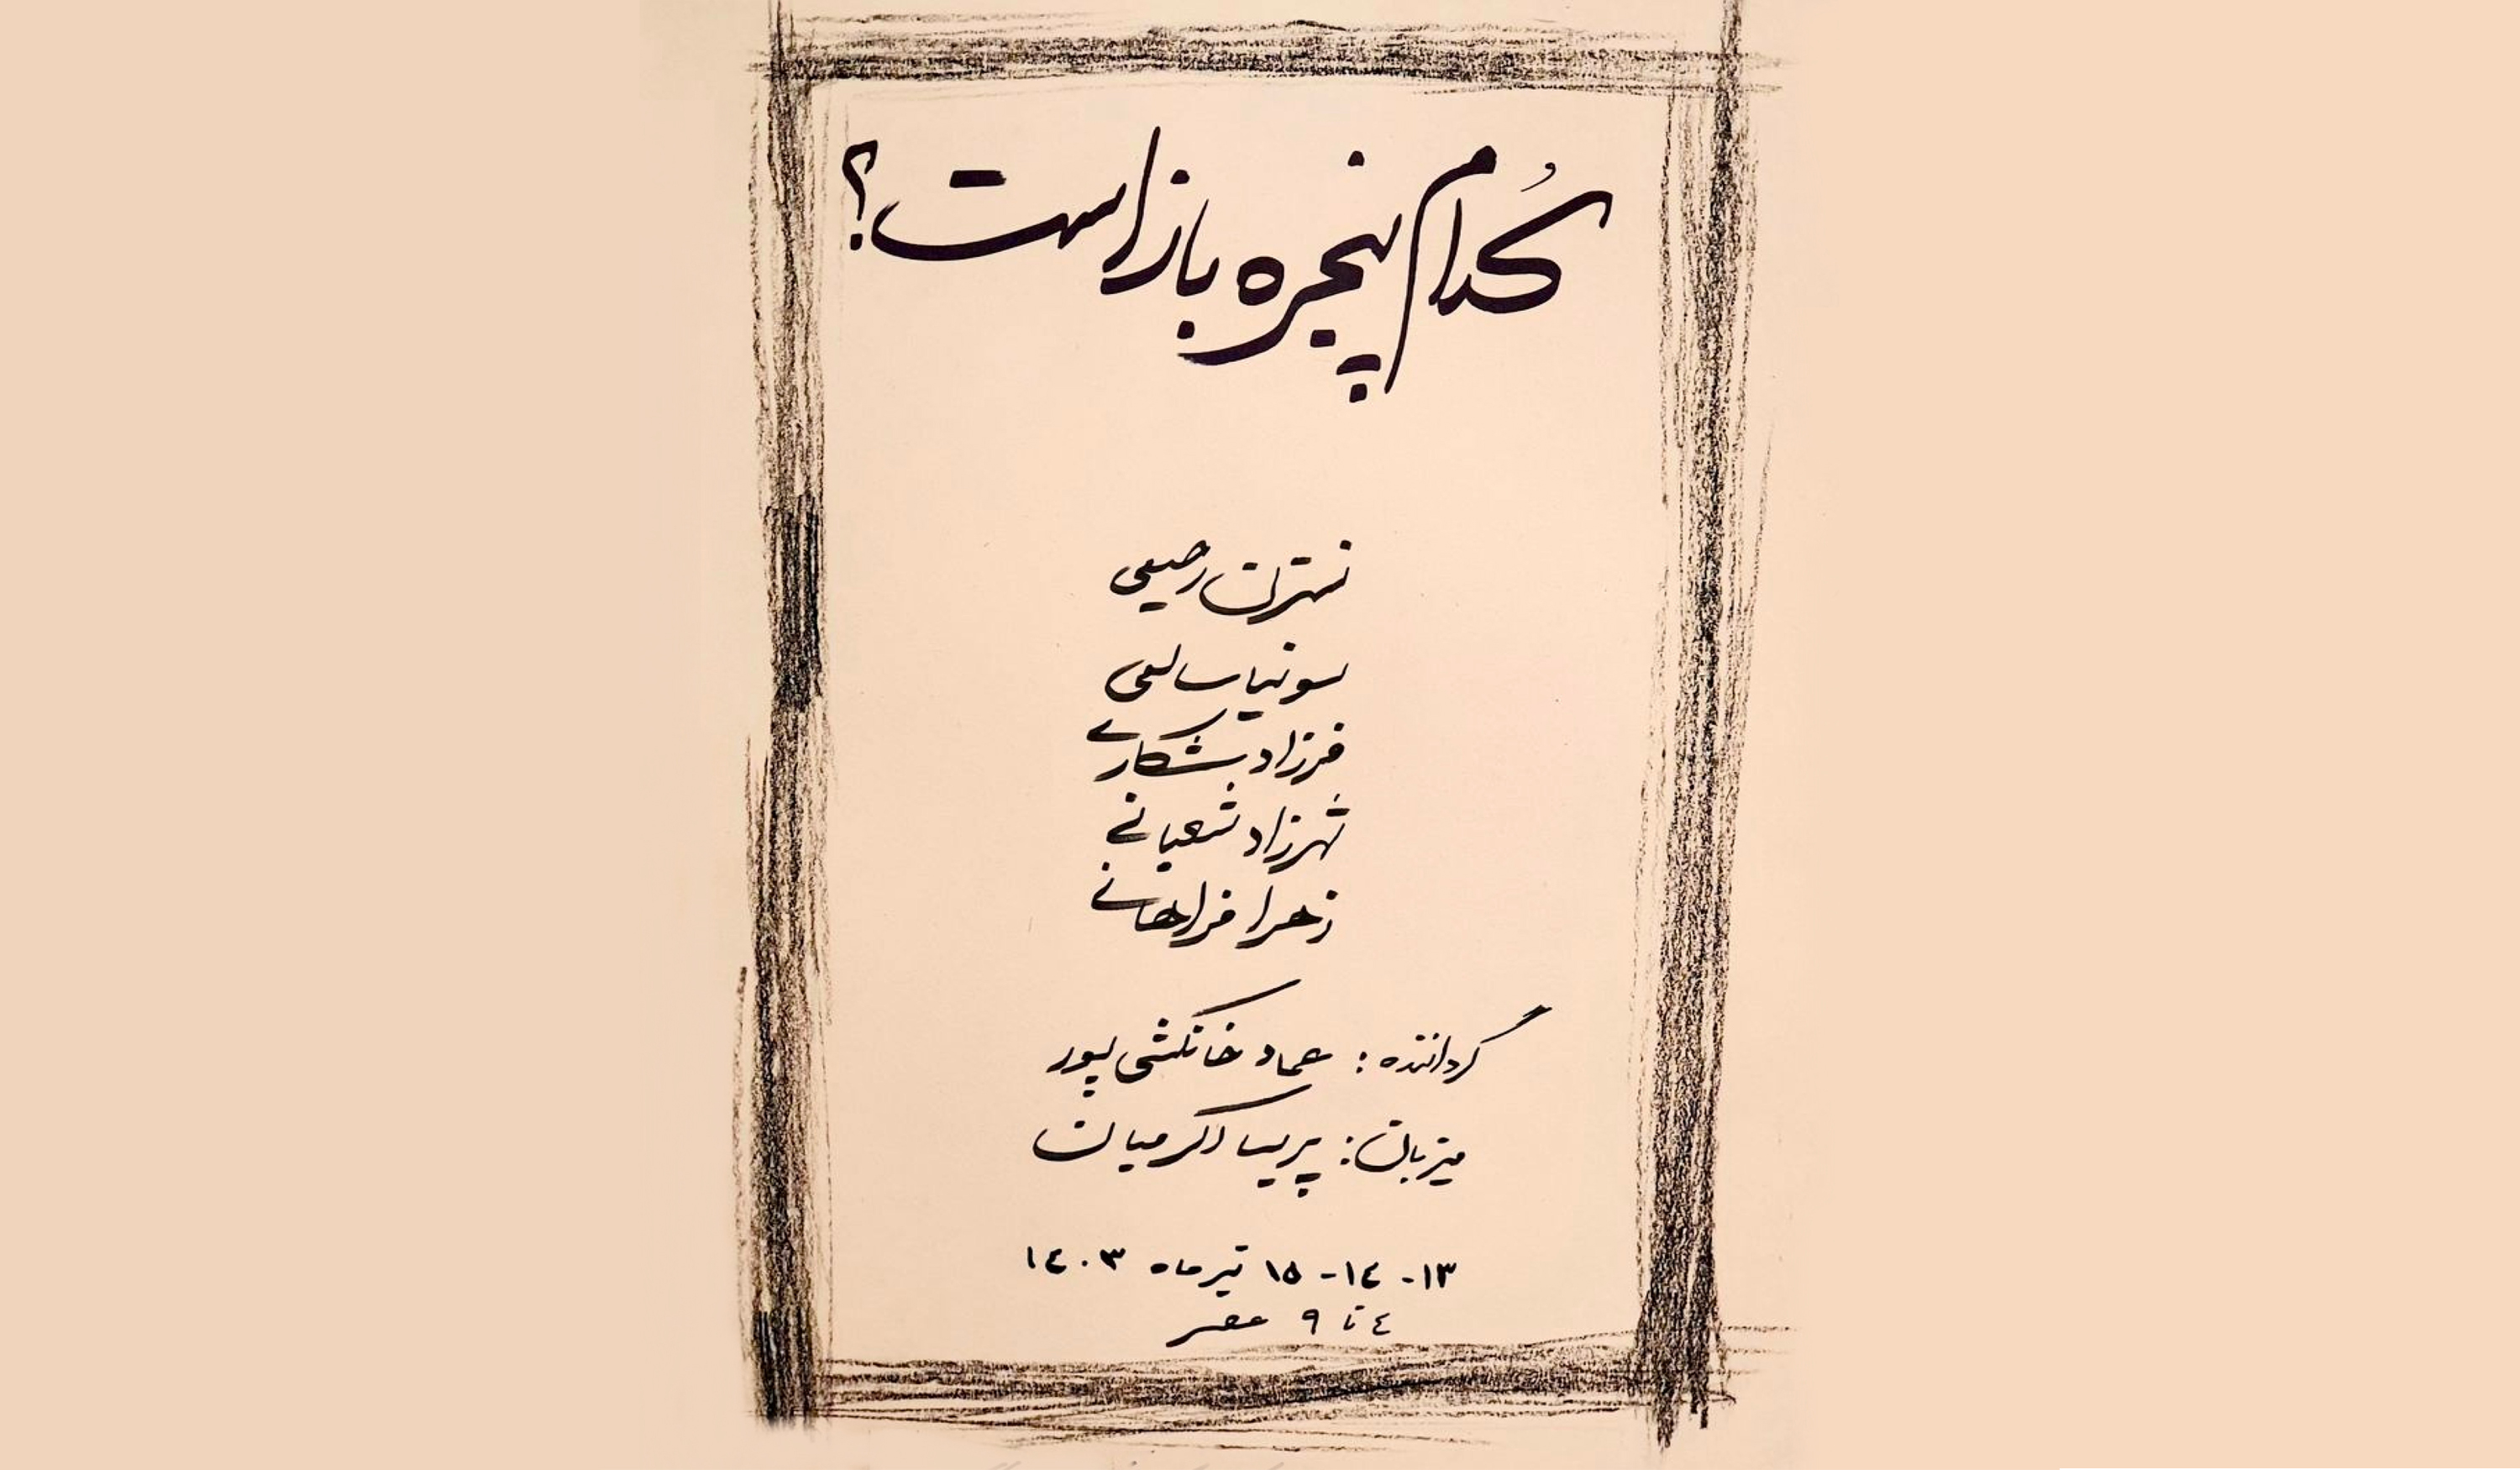 کدام پنجره باز است؟
نسترن رحیمی
سونیا سالمی
فرزاد شکاری
شهرزاد شعبانی
زهرا فراهانی
گرداننده: عماد خانکشی پور
میزبان: پریسا اکرمیان
۱۳- ۱٤- ۱۵ تیر ماه ۱٤۰۳
٤ تا ۹ عصر